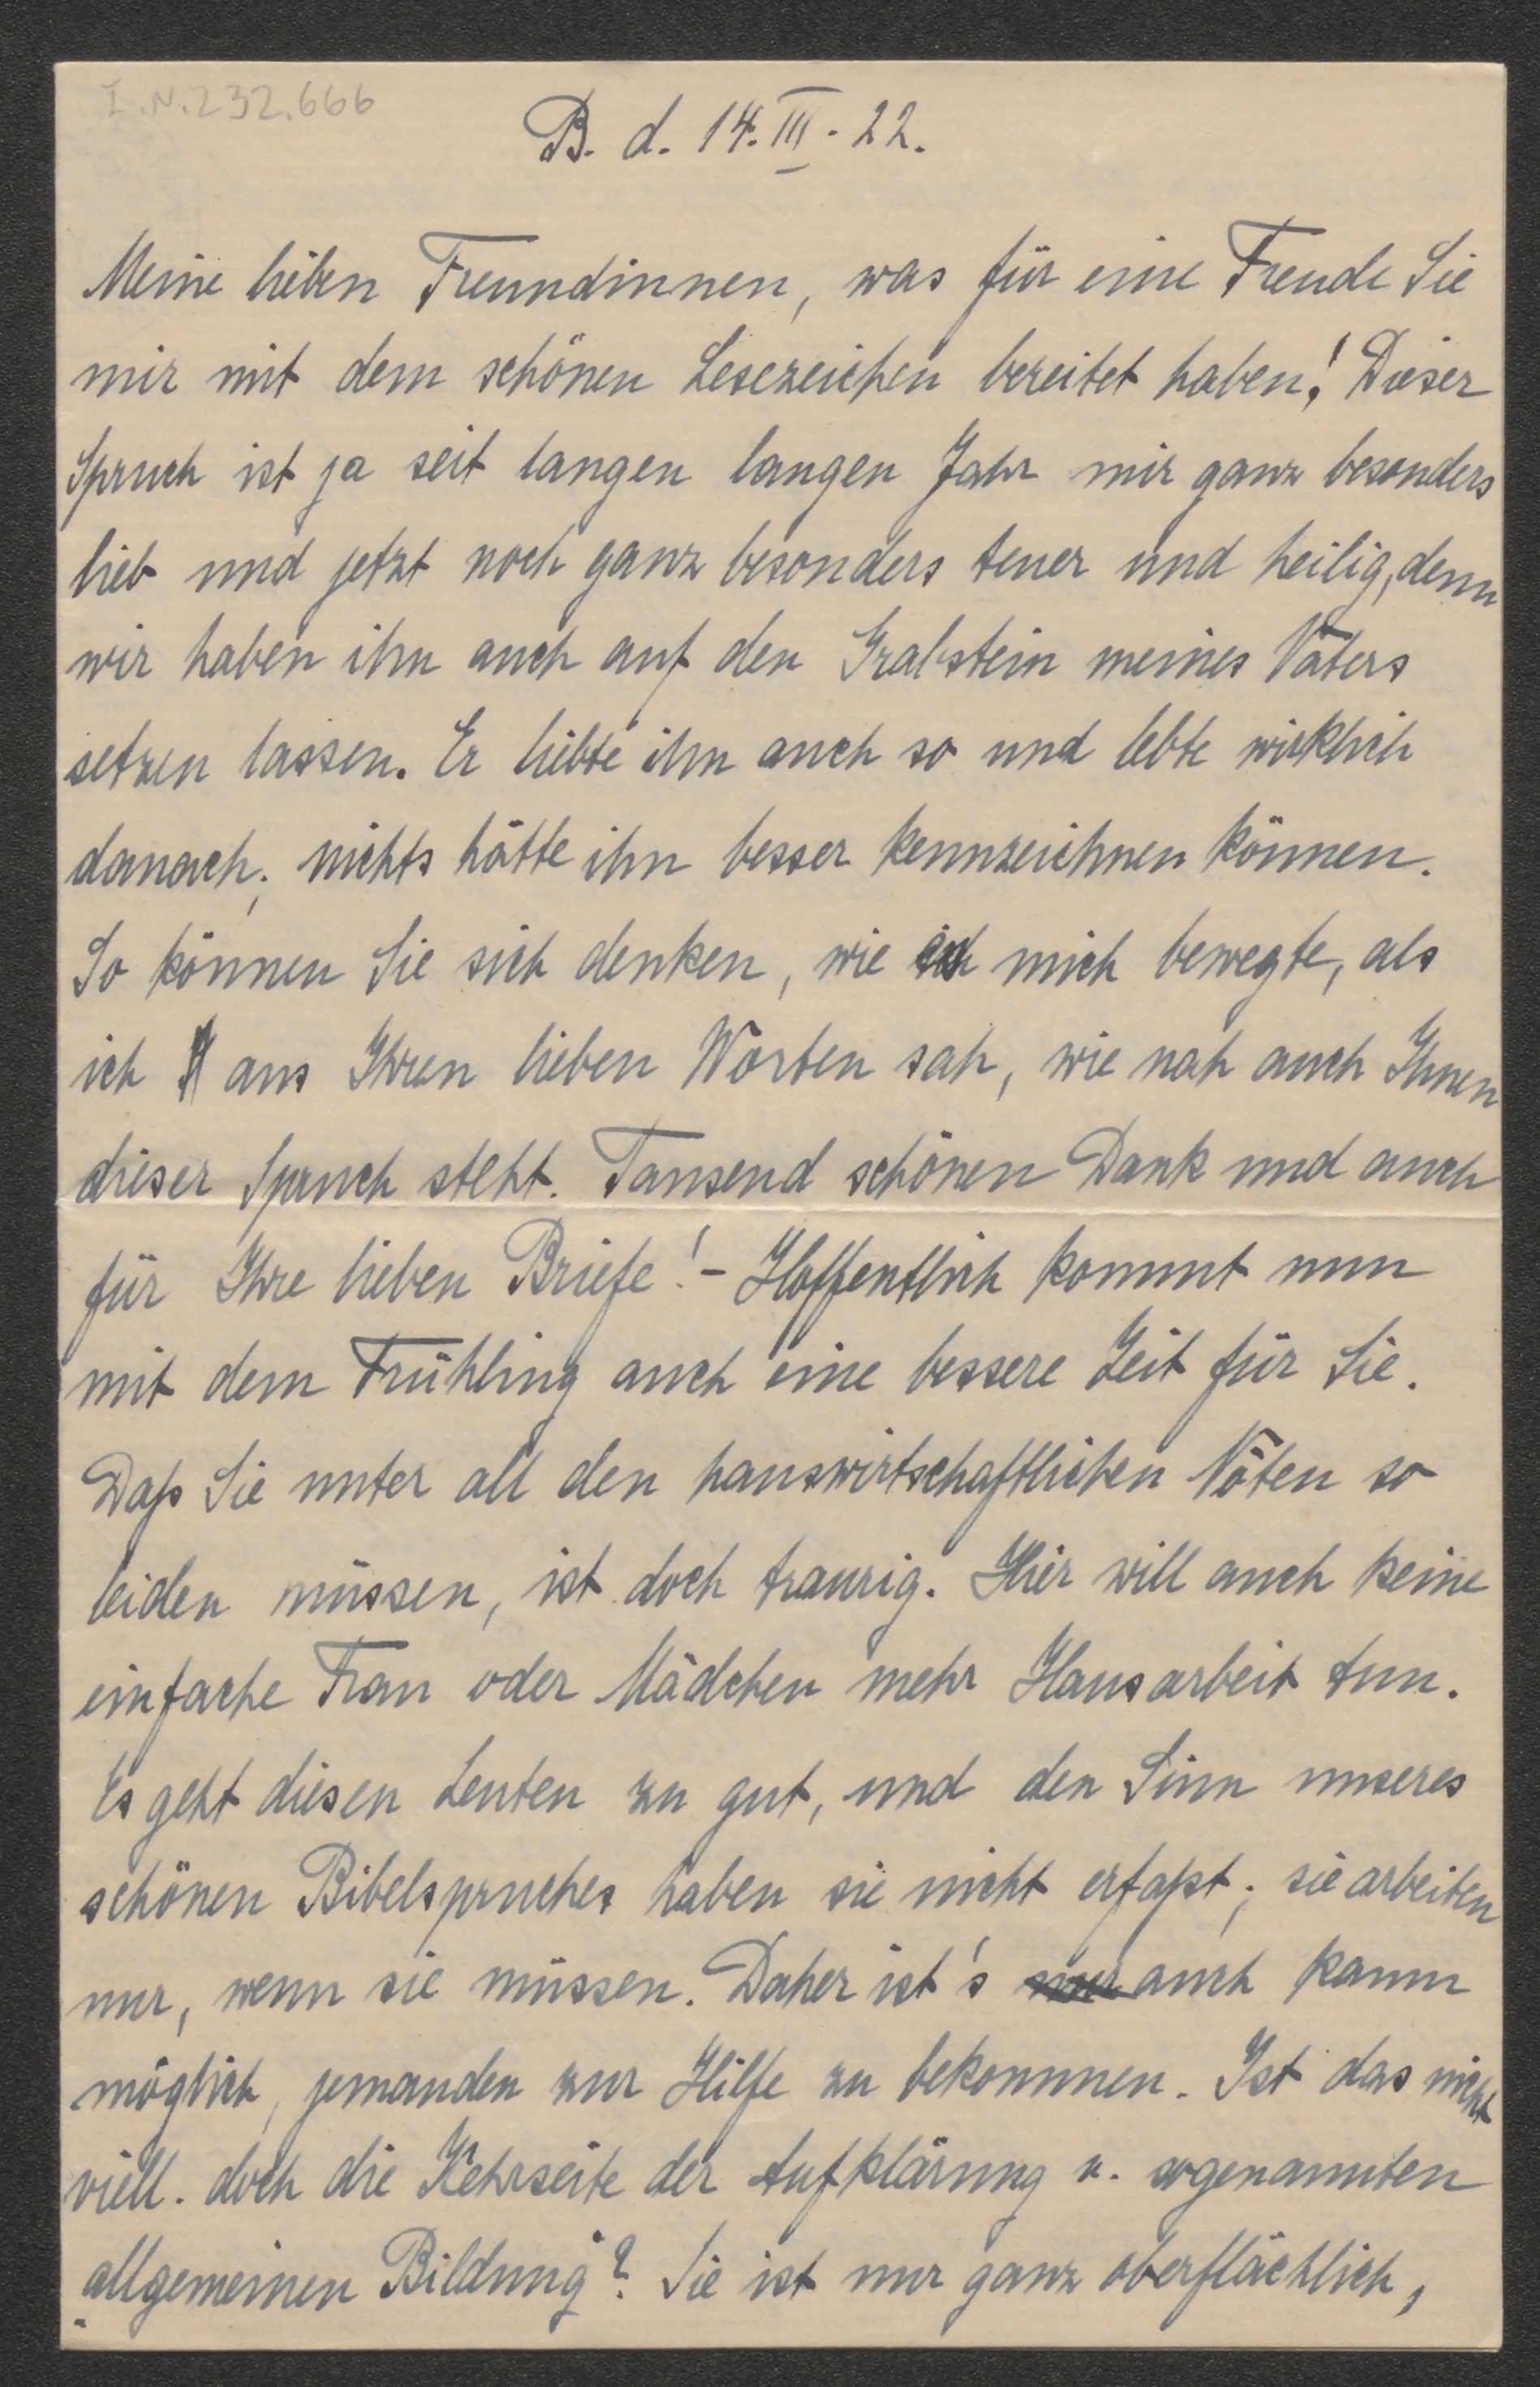 I.N.232.666
B. d. 14. III. 22.
Meine lieben Freundinnen, was für eine Freude Sie
mir mit dem schönen Lesezeichen bereitet haben! Dieser
Spruch ist ja seit langen langen Jahr mir ganz besonders
lieb und jetzt noch ganz besonders teuer und heilig, denn
wir haben ihn auch auf den Grabstein meines Vaters
setzen lassen. Er liebte ihn auch so und lebte wirklich
danach; nichts hätte ihn besser kennzeichnen können.
So können Sie sich denken, wie mich bewegte, als
ich aus Ihren lieben Worten sah, wie nah auch Ihnen
dieser Spruch steht. Tausend schönen Dank und auch
für Ihre lieben Briefe! - Hoffentlich kommt nun
mit dem Frühling auch eine bessere Zeit für Sie.
Daß Sie unter all den hauswirtschaftlichen Nöten so
leiden müssen, ist doch traurig. Hier will auch keine
einfache Frau oder Mädchen mehr Hausarbeit tun.
Es geht diesen Leuten zu gut, und den Sinn unseres
schönen Bibelspruches haben sie nicht erfaßt; sie arbeiten
nur, wenn sie müssen. Daher ist's nur auch kaum
möglich, jemanden zur Hilfe zu bekommen. Ist das nicht
viell. doch die Kehrseite der Aufklärung u. sogenannten
allgemeinen Bildung? Sie ist nur ganz oberflächlich,